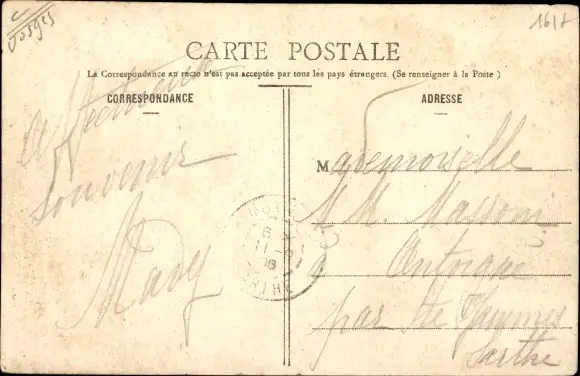 Vosges
1618
CARTE POSTALE
La Correspondance au recto n'est pas acceptée par tous les pays étrangers. (Se renseigner à la Poste)
CORRESPONDANCE
affectueux
souvenir
Mary
ADRESSE
Mademoiselle
M. Masson
à
par Ste Jammes
Sarthe